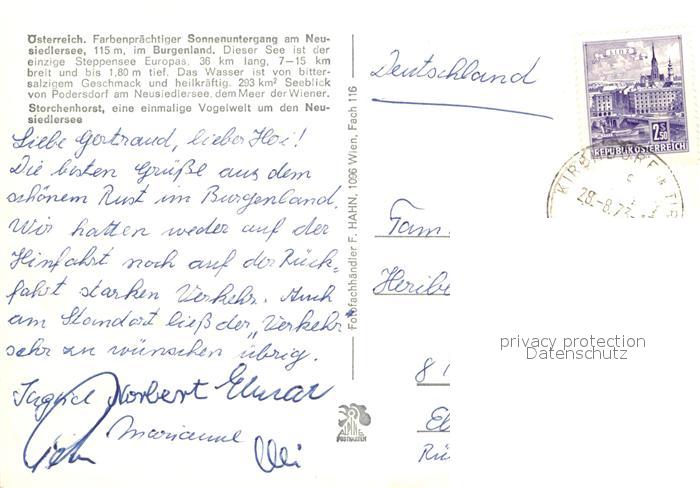 Österreich. Farbenprächtiger Sonnenuntergang am Neu-
siedlersee, 115 m, im Burgenland. Dieser See ist der
einzige Steppensee Europas, 36 km lang, 7—15 km
breit und bis 1,80 m tief. Das Wasser ist von bitter-
salzigem Geschmack und heilkräftig. 293 km² Seeblick
von Podersdorf am Neusiedlersee, dem Meer der Wiener.
Storchenhorst, eine einmalige Vogelwelt um den Neu-
siedlersee
Liebe Gertraud, lieber
Die besten Grüße aus dem
schönen Rust im Burgenland.
Wir hatten weder auf der
Hinfahrt noch auf der Rück=
fahrt starken Verkehr. Auch
am Standort ließ der „Verkehr"
sehr zu wünschen übrig.
Ingrid Norbert Elmar
Marianne
Fotofachhändler F. HAHN, 1096 Wien, Fach 116
Deutschland
LINZ
2S50
REPUBLIK ÖSTERREICH
28.-8.73
Fam.
Heribe
8 1
El
Rü
privacy protection
Datenschutz